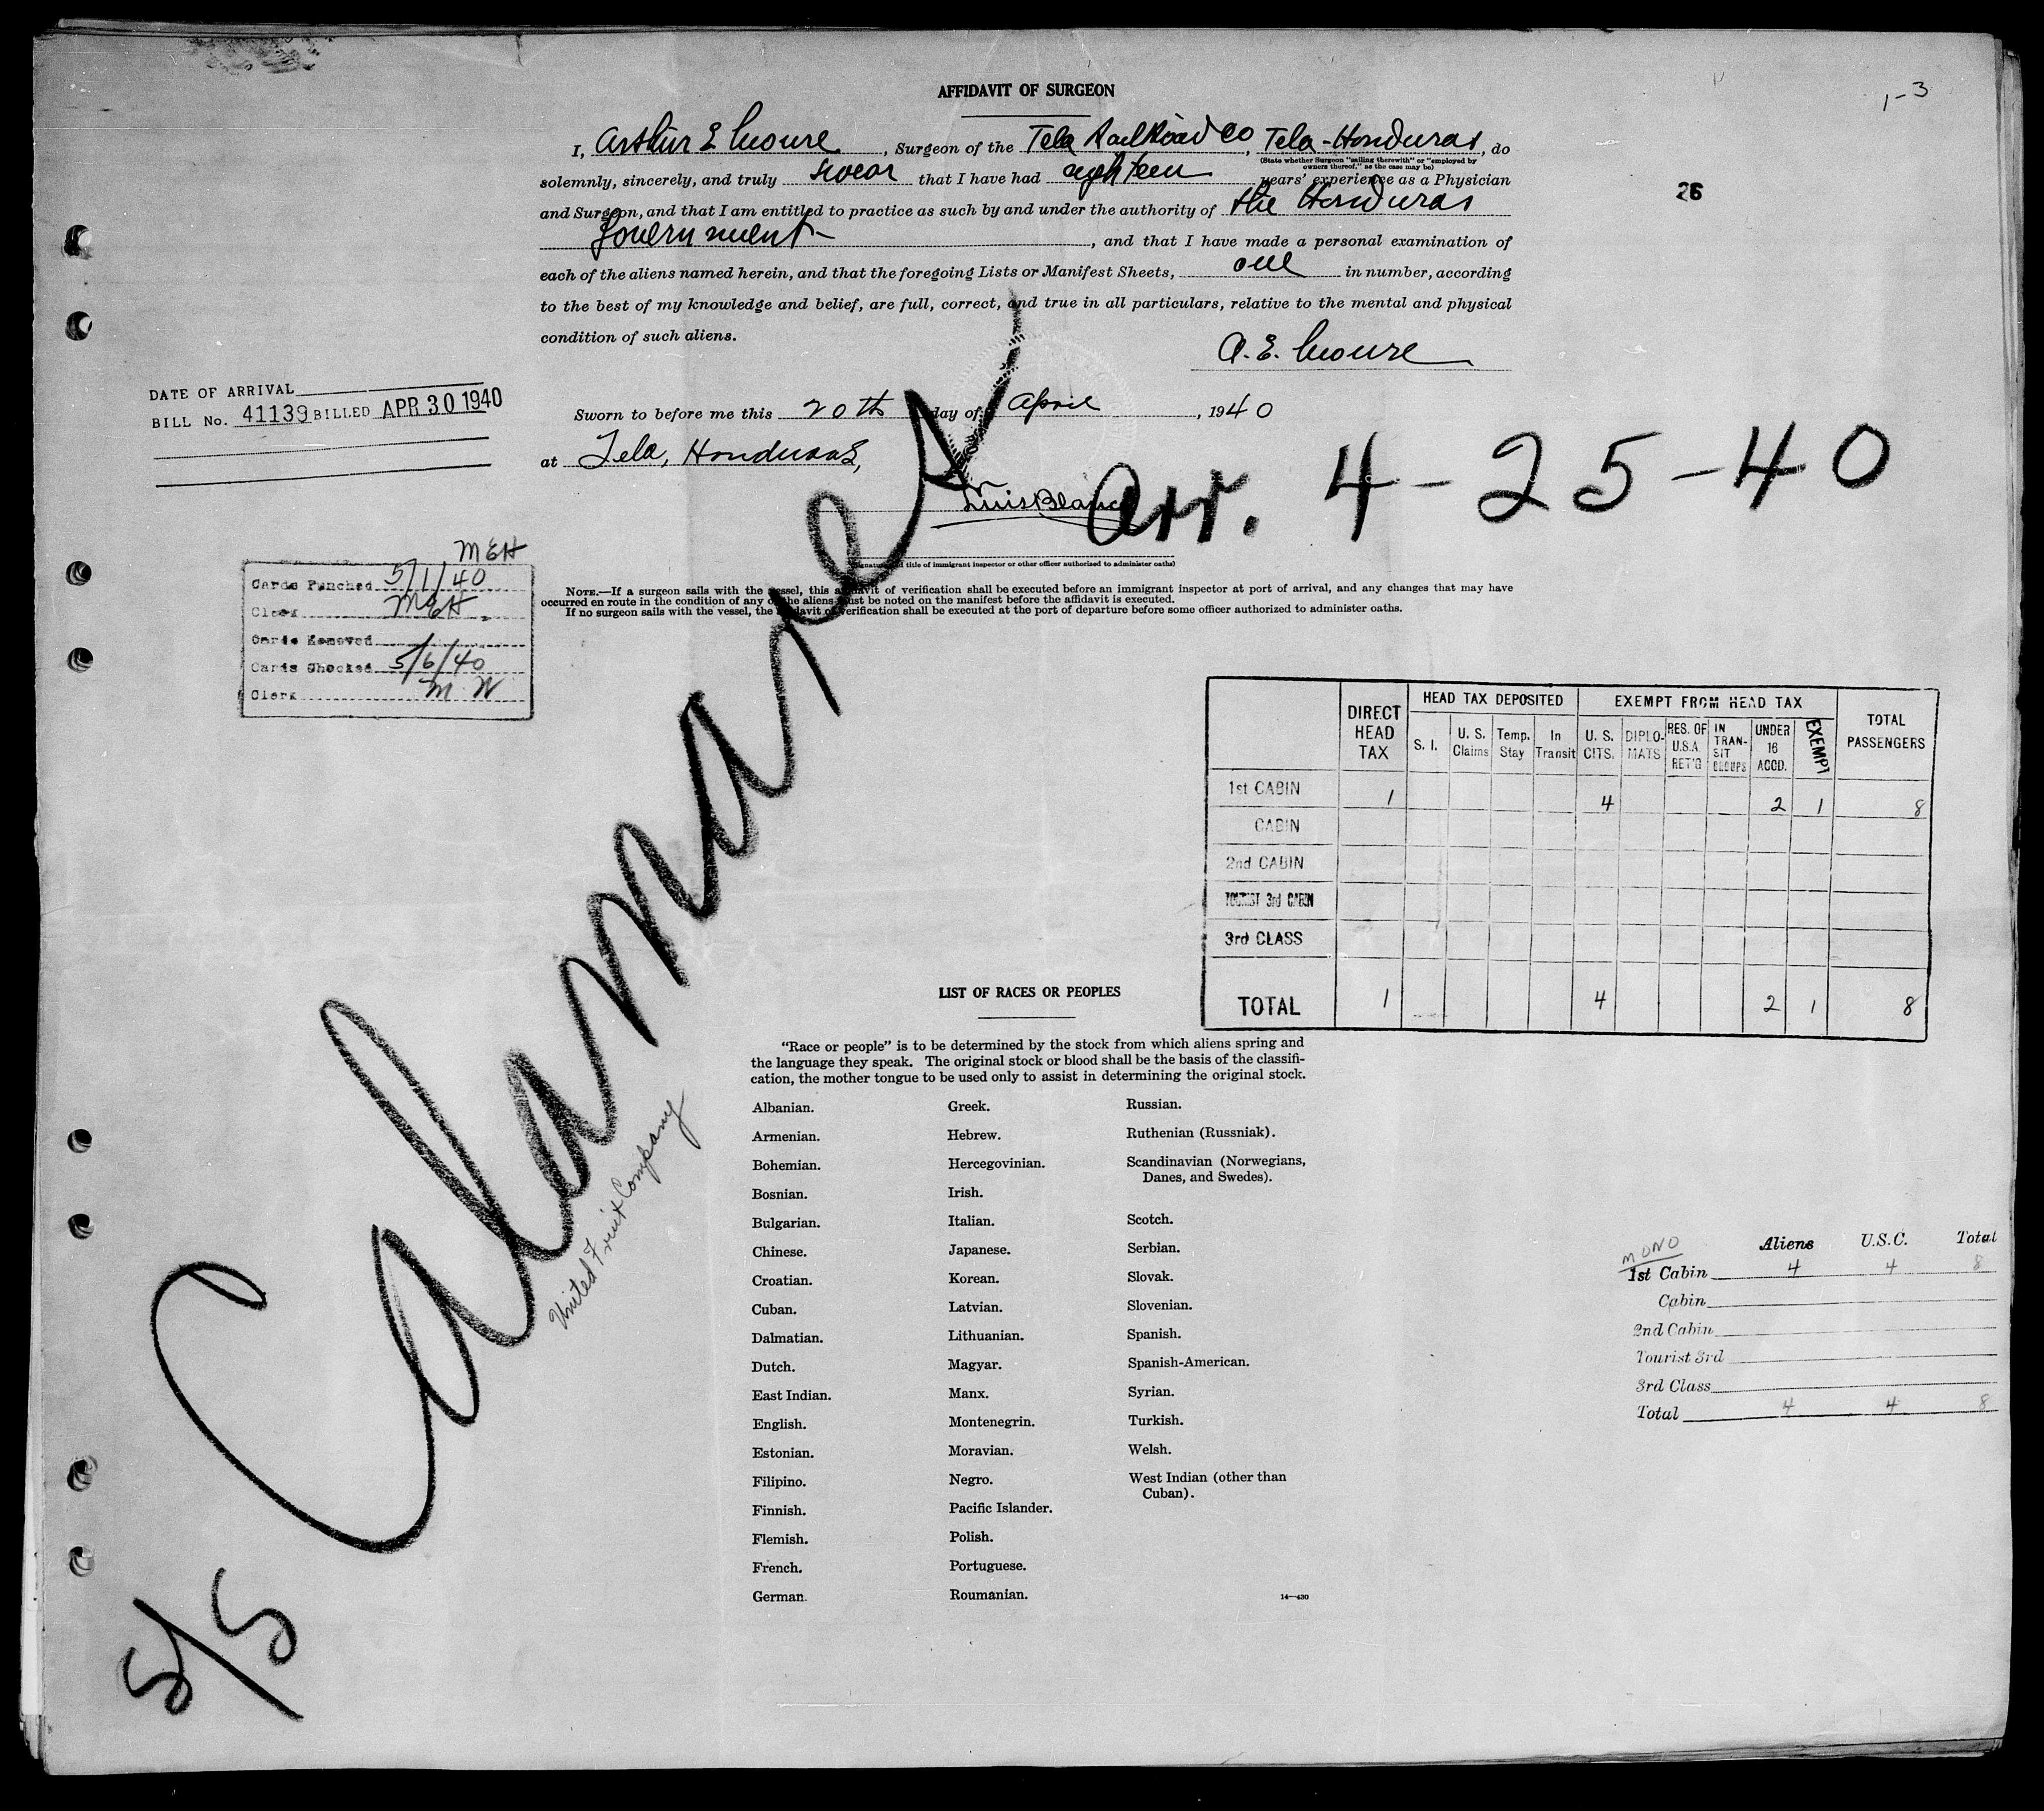 1-3
AFFIDAVIT OF SURGEON
I, Arthur E Moure, Surgeon of the Tela Railroad Co, Tela-Honduras, do
(State whether Surgeon "sailing therewith" or "employed by
owners thereof," as the case may be)
solemnly, sincerely, and truly swear that I have had eighteen years' experience as a Physician
26
and Surgeon, and that I am entitled to practice as such by and under the authority of the Honduras
Government-, and that I have made a personal examination of
each of the aliens named herein, and that the foregoing Lists or Manifest Sheets, one in number, according
to the best of my knowledge and belief, are full, correct, and true in all particulars, relative to the mental and physical
condition of such aliens.
A. E. Moure
DATE OF ARRIVAL
BILL No. 41139 BILLED APR 30 1940
Sworn to before me this 20th day of April, 1940
at Tela, Honduras,
Luis Blanco
Arr. 4-25-40
(Signature and title of immigrant inspector or other officer authorized to administer oaths)
MEH
Cards Punched 5/1/40
Clerk MEH
Cards Removed
Cards Checked 5/6/40
Clerk M W
NOTE.—If a surgeon sails with the vessel, this affidavit of verification shall be executed before an immigrant inspector at port of arrival, and any changes that may have
occurred en route in the condition of any of the aliens must be noted on the manifest before the affidavit is executed.
If no surgeon sails with the vessel, the affidavit of verification shall be executed at the port of departure before some officer authorized to administer oaths.
DIRECT HEAD TAX HEAD TAX DEPOSITED EXEMPT FROM HEAD TAX TOTAL PASSENGERS
S. I. U. S. Claims Temp. Stay In Transit U. S. CITS. DIPLO-MATS RES. OF U.S.A RET'G IN TRAN-SIT GROUPS UNDER 16 ACCD. EXEMPT
1st CABIN 1 4 2 1 8
CABIN
2nd CABIN
TOURIST 3rd CABIN
3rd CLASS
TOTAL 1 4 2 1 8
S/S Calamares
United Fruit Company
LIST OF RACES OR PEOPLES
"Race or people" is to be determined by the stock from which aliens spring and
the language they speak. The original stock or blood shall be the basis of the classifi-
cation, the mother tongue to be used only to assist in determining the original stock.
Albanian.
Armenian.
Bohemian.
Bosnian.
Bulgarian.
Chinese.
Croatian.
Cuban.
Dalmatian.
Dutch.
East Indian.
English.
Estonian.
Filipino.
Finnish.
Flemish.
French.
German.
Greek.
Hebrew.
Hercegovinian.
Irish.
Italian.
Japanese.
Korean.
Latvian.
Lithuanian.
Magyar.
Manx.
Montenegrin.
Moravian.
Negro.
Pacific Islander.
Polish.
Portuguese.
Roumanian.
Russian.
Ruthenian (Russniak).
Scandinavian (Norwegians,
Danes, and Swedes).
Scotch.
Serbian.
Slovak.
Slovenian.
Spanish.
Spanish-American.
Syrian.
Turkish.
Welsh.
West Indian (other than
Cuban).
14—430
MONO
Aliens U.S.C. Total
1st Cabin 4 4 8
Cabin
2nd Cabin
Tourist 3rd
3rd Class
Total 4 4 8